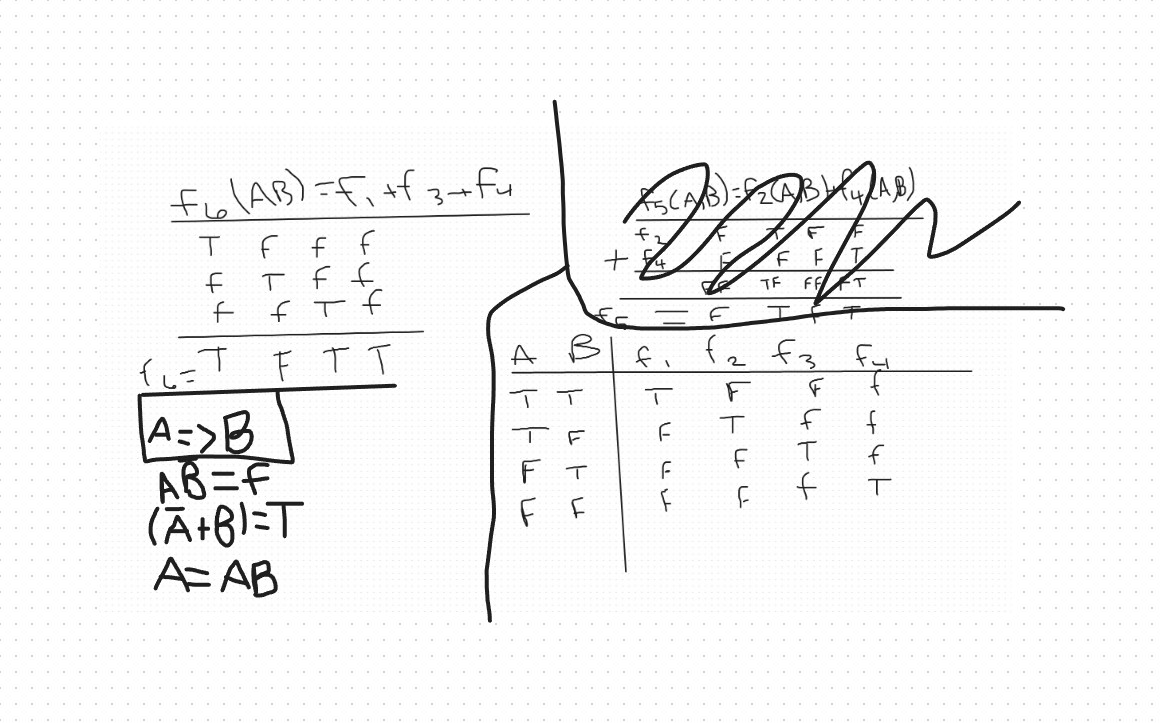 f₆(AB)=f₁+f₃+f₄
T F f f
f T f f
f f T f
f₆= T F T T
A=>B
AB̅=F
(A̅+B)=T
A=AB
f₅(A,B)=f₂(A,B)+f₄(A,B)
f₂ F T F F
+ f₄ F F F T
FF TF FF FT
f₅ = F T F T
A B f₁ f₂ f₃ f₄
T T T F F f
T F F T f f
F T F F T f
F F F F f T